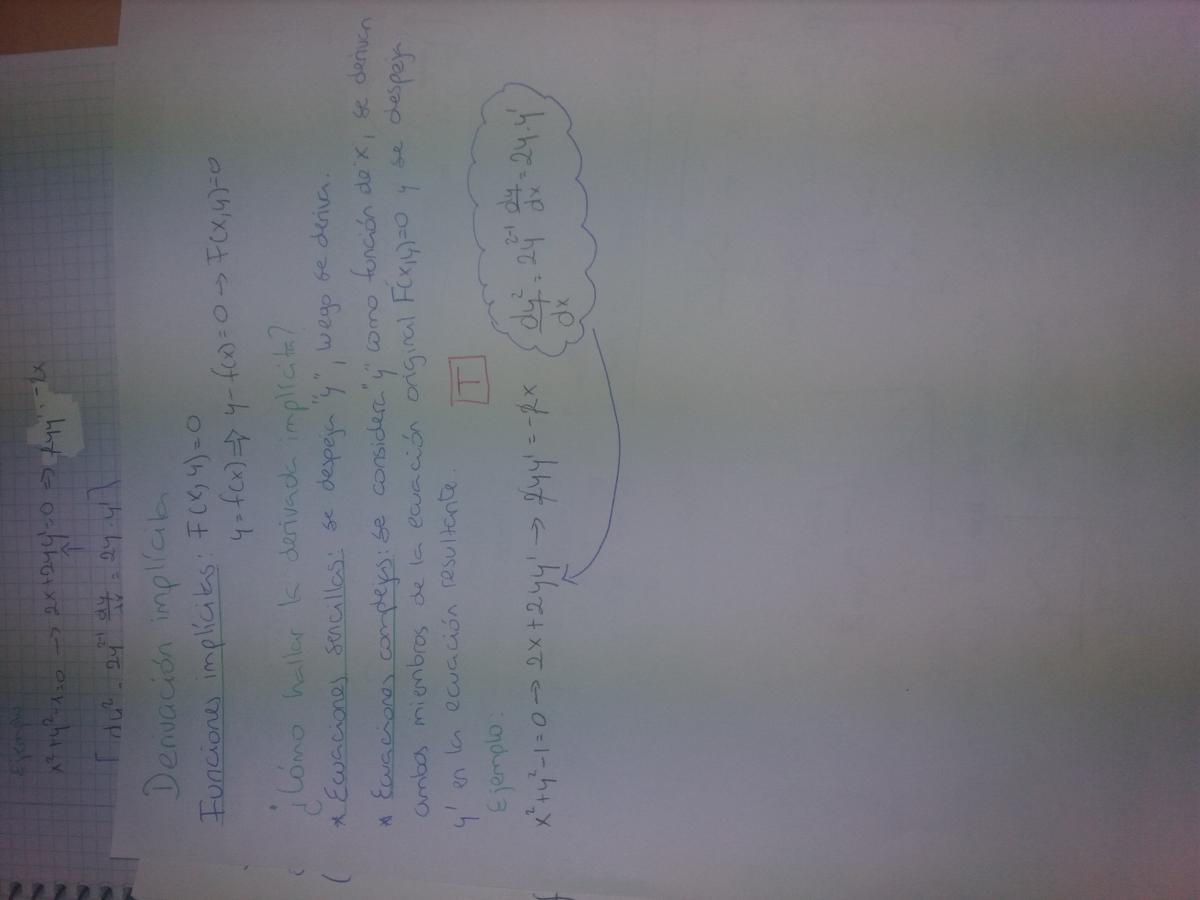 Ejemplo
x²+y²-1=0 → 2x+2yy'=0 ⇒ 2yy'=-2x
[dy² = 2y²⁻¹ dy/dx = 2y·y']
Derivación implícita
Funciones implícitas: F(x,y)=0
y=f(x) ⇒ y-f(x)=0 → F(x,y)=0
¿Cómo hallar la derivada implícita?
* Ecuaciones sencillas: se despeja "y", luego se deriva.
* Ecuaciones complejas: se considera "y" como función de x, se derivan
ambos miembros de la ecuación original F(x,y)=0 y se despeja
y' en la ecuación resultante.
T
Ejemplo:
x²+y²-1=0 → 2x+2yy' → 2yy'=-2x
dy²/dx = 2y²⁻¹ dy/dx = 2y·y'